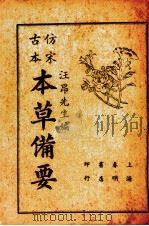 仿宋
古本
汪昂先生編
本草備要
上海
春明
書店
印行